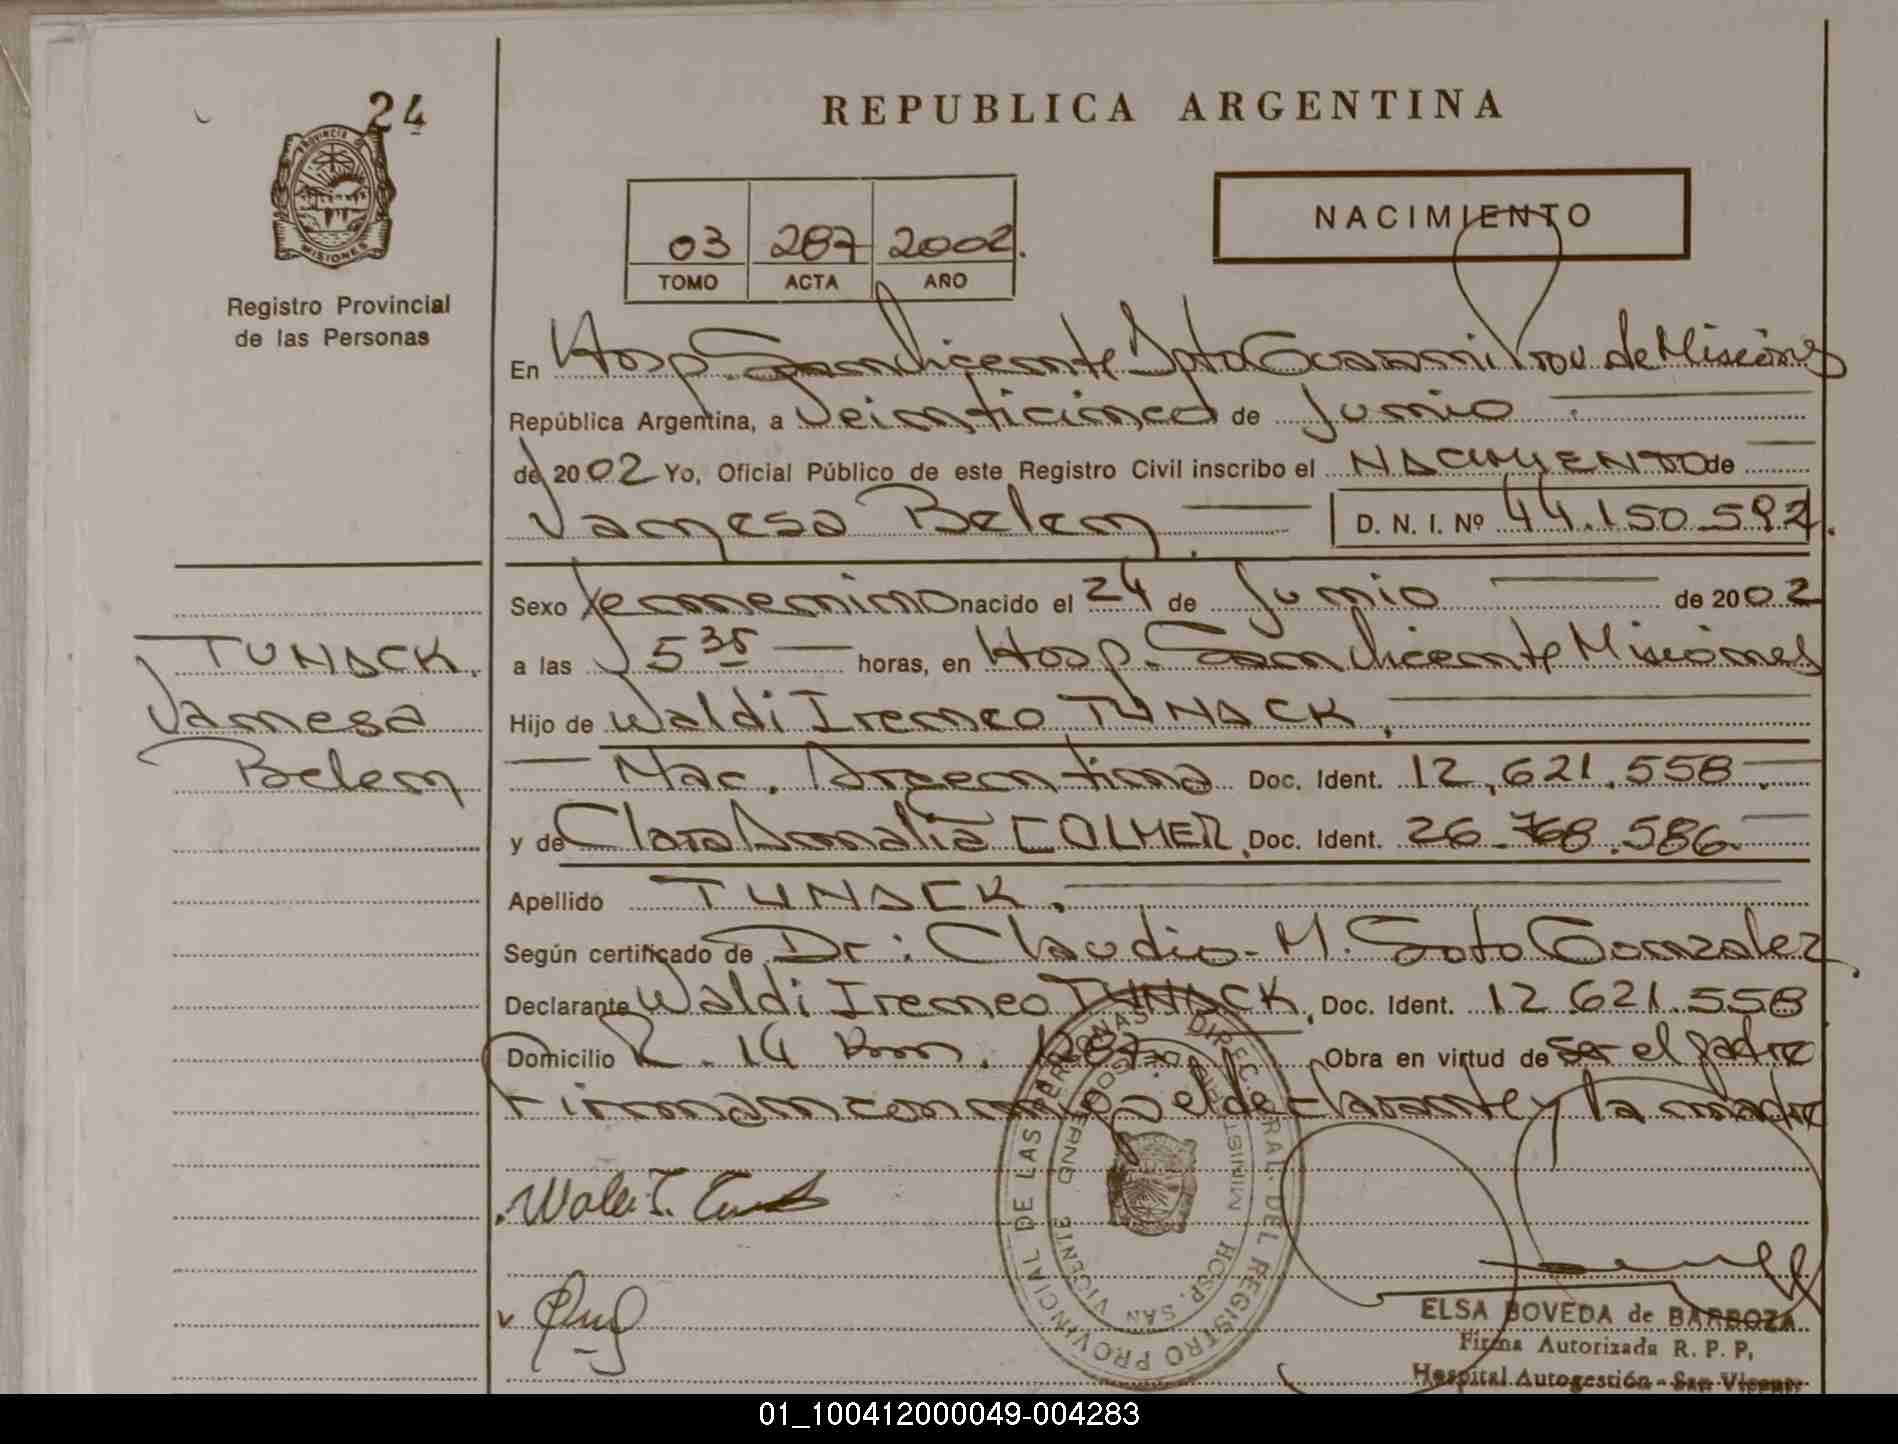 24
REPUBLICA ARGENTINA
PROVINCIA DE
MISIONES
Registro Provincial
de las Personas
03 287 2002.
TOMO ACTA AÑO
NACIMIENTO
En Hosp. San Vicente Dpto Guarani Prov. de Misiones
República Argentina, a Veinticinco de Junio
de 2002 Yo, Oficial Público de este Registro Civil inscribo el NACIMIENTO de
Vanesa Belen D. N. I. Nº 44.150.592.
Sexo Femenino nacido el 24 de Junio de 2002
a las 5 35 horas, en Hosp. San Vicente Misiones
TUNACK.
Vanesa
Belen
Hijo de Waldi Ireneo TUNACK,
Nac. Argentina Doc. Ident. 12.621.558.
y de Clara Analia COLMER, Doc. Ident. 26.768.586.
Apellido TUNACK.
Según certificado de Dr: Claudio M. Soto Gonzalez.
Declarante Waldi Ireneo TUNACK, Doc. Ident. 12.621.558
Domicilio R. 14 Km. 1287. Obra en virtud de ser el padre
Firman conmigo el declarante y la madre
DIREC. GRAL. DEL REGISTRO PROVINCIAL DE LAS PERSONAS
MINISTERIO DE GOBIERNO
HOSP. SAN VICENTE
ELSA BOVEDA de BARBOZA
Firma Autorizada R. P. P.
Hospital Autogestión - San Vicente
01_100412000049-004283